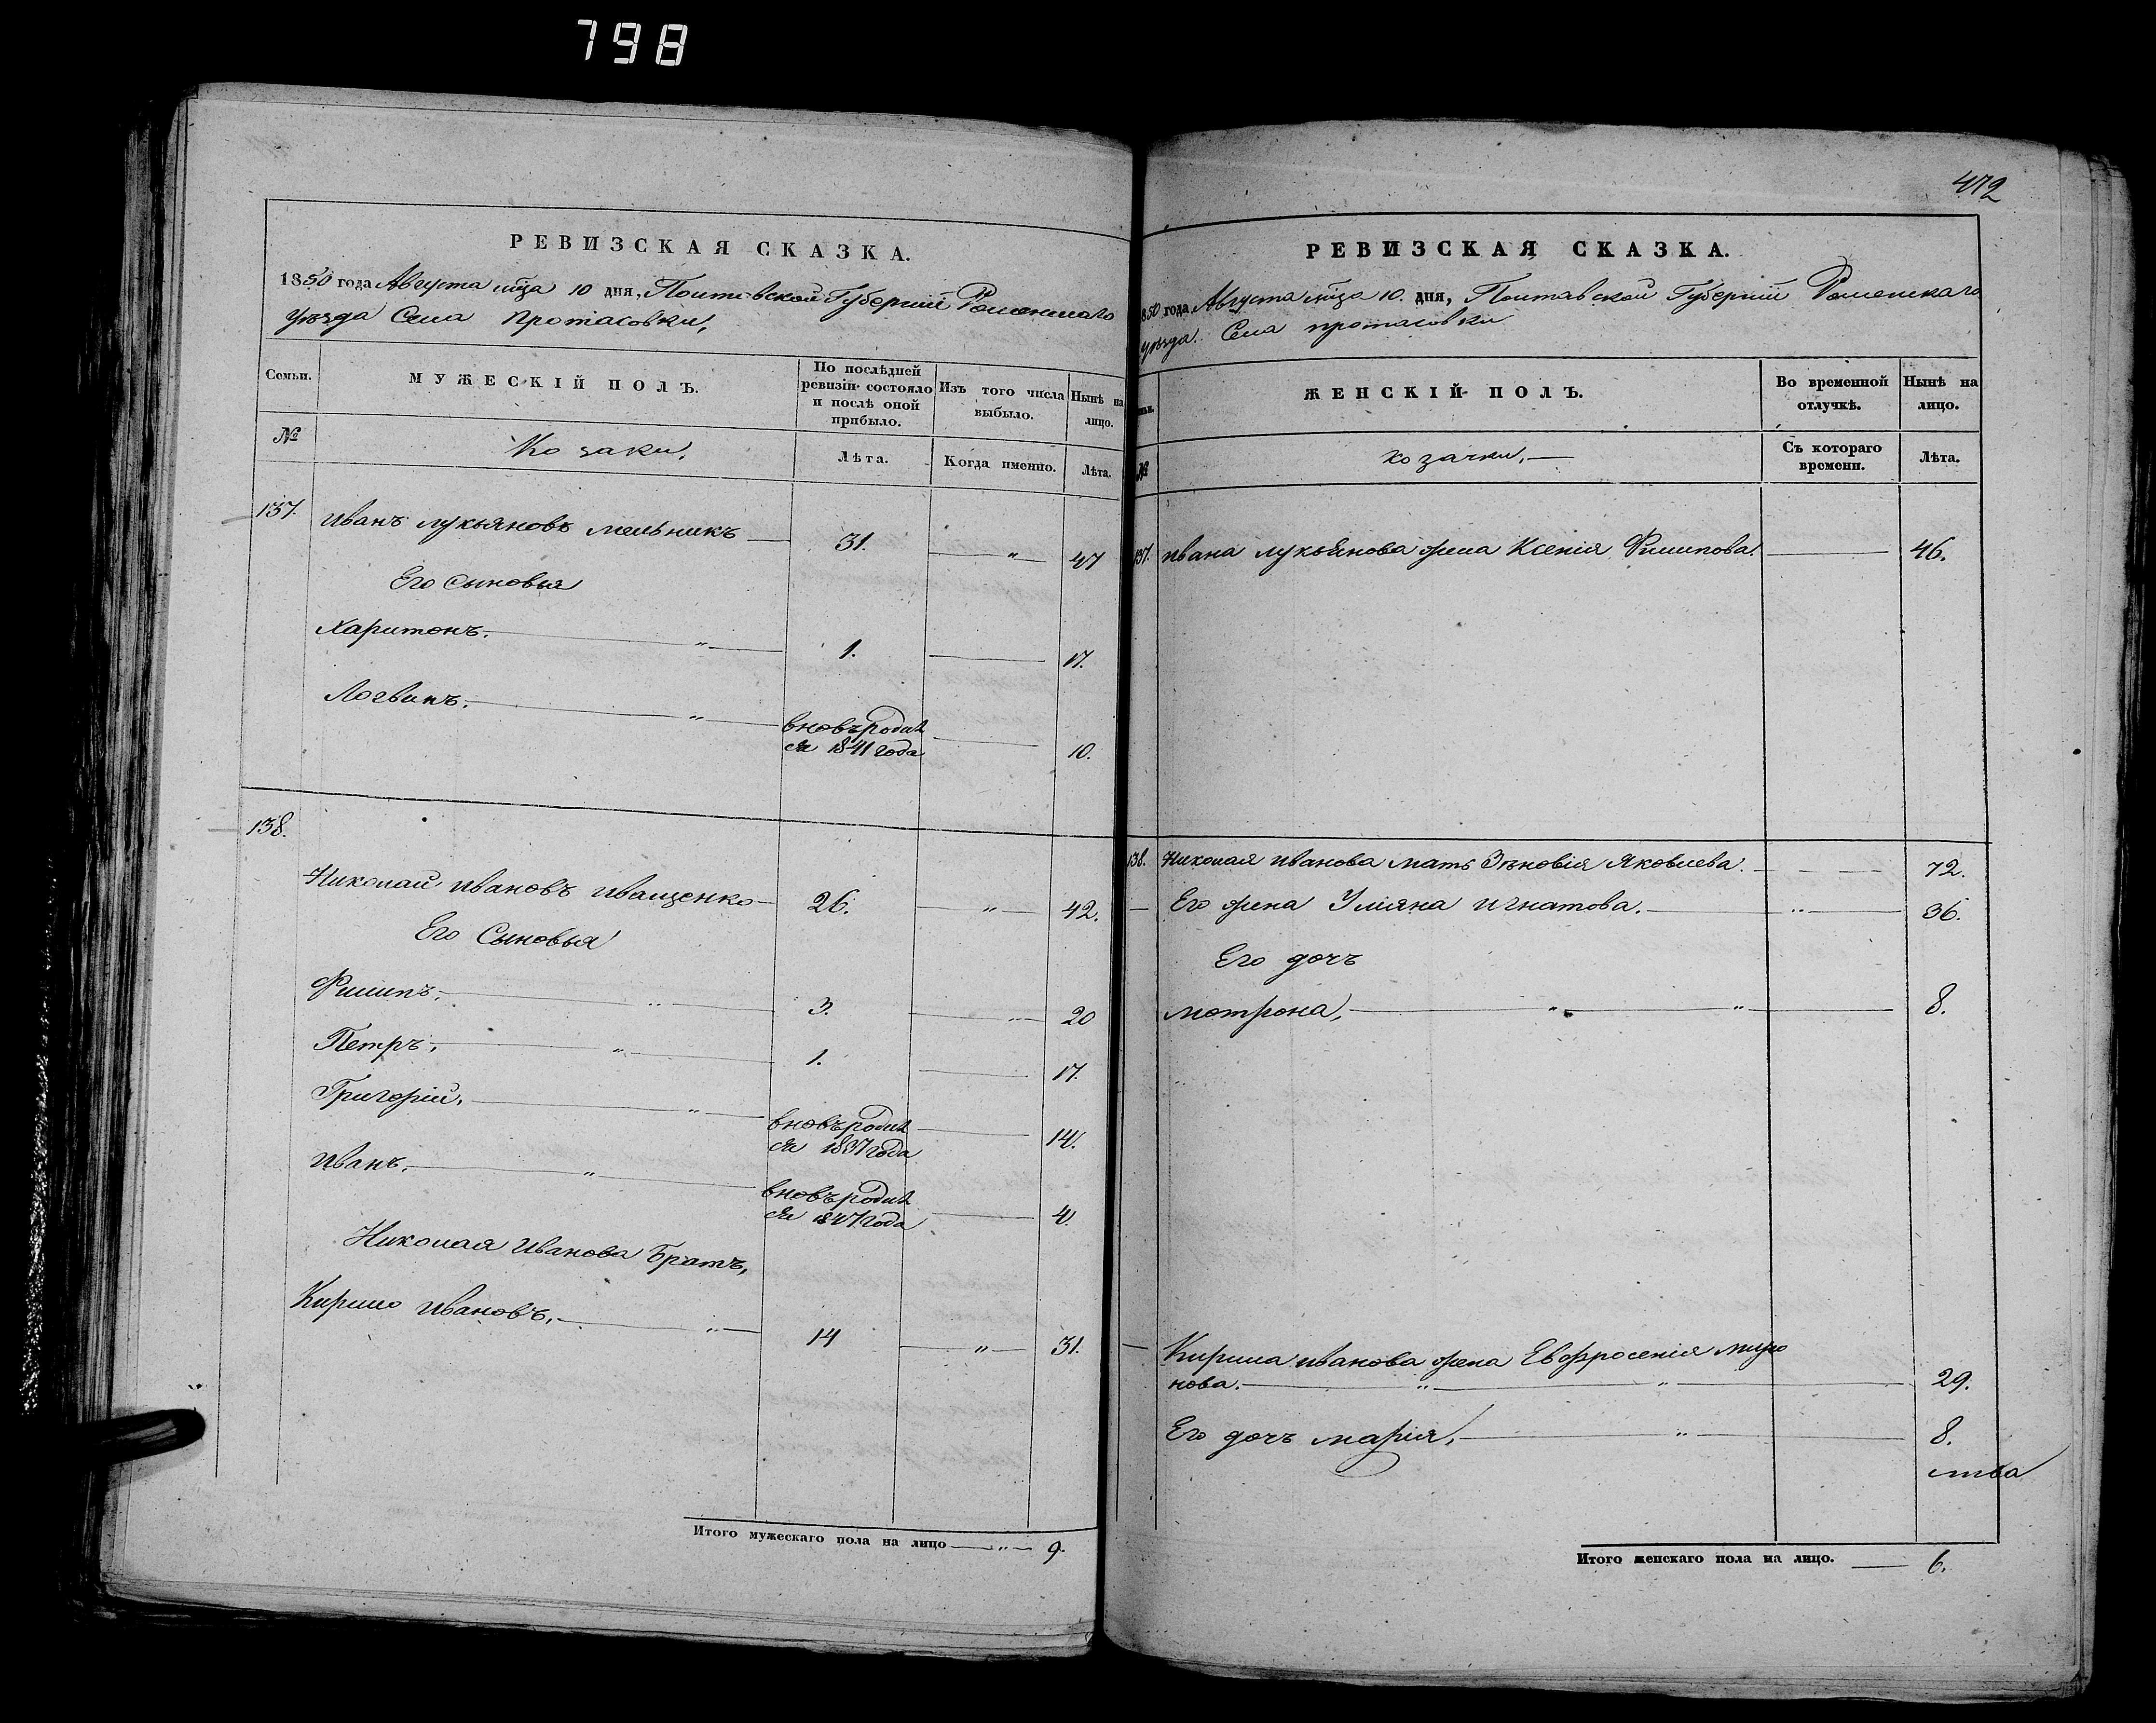 798
РЕВИЗСКАЯ СКАЗКА.
1850 года Августа мца 10 дня, Полтавской Губерніи Роменскаго
уѣзда Села Протасовки,
Семьи.
МУЖЕСКІЙ ПОЛЪ.
По послѣдней
ревизіи состояло
и послѣ оной
прибыло.
Изъ того числа
выбыло.
Нынѣ на
лицо.
№
Козаки,
Лѣта.
Когда именно.
Лѣта.
137. Иванъ Лукьяновъ Мельникъ — 31. — " — 47
Его Сыновья
Харитонъ. — " — 1. — 17.
Логвинъ. — " — вновь родил
ся 1841 года — 10.
138.
Николай Ивановъ Иващенко — 26. — " — 42.
Его Сыновья
Филипъ. — " — 3. — " — 20
Петръ, — " — 1. — 17.
Григорій, — " — вновь родил
ся 1837 года — 14.
Иванъ. — " — вновь родил
ся 1847 года — 4.
Николая Иванова Братъ,
Кирило Ивановъ. — " — 14 — " — 31.
Итого мужескаго пола на лицо — " — 9.
472
РЕВИЗСКАЯ СКАЗКА.
850 года Августа мца 10. дня, Полтавской Губерніи Роменскаго
уѣзда. Села Протасовки
ьи.
ЖЕНСКІЙ ПОЛЪ.
Во временной
отлучкѣ.
Нынѣ на
лицо.
№
козачки, —
Съ котораго
времени.
Лѣта.
137. Ивана Лукьянова жена Ксенія Филипова. — 46.
138. Николая Иванова мать Зѣновія Яковлева. — 72.
— Его жена Уліяна Игнатова. — " — 36.
Его дочъ
Мотрона, — " — " — 8.
— Кирила Иванова жена Евфросенія Миро
нова. — " — " — 29.
Его дочъ Марія, — " — 8.
Итого женскаго пола на лицо. — 6.